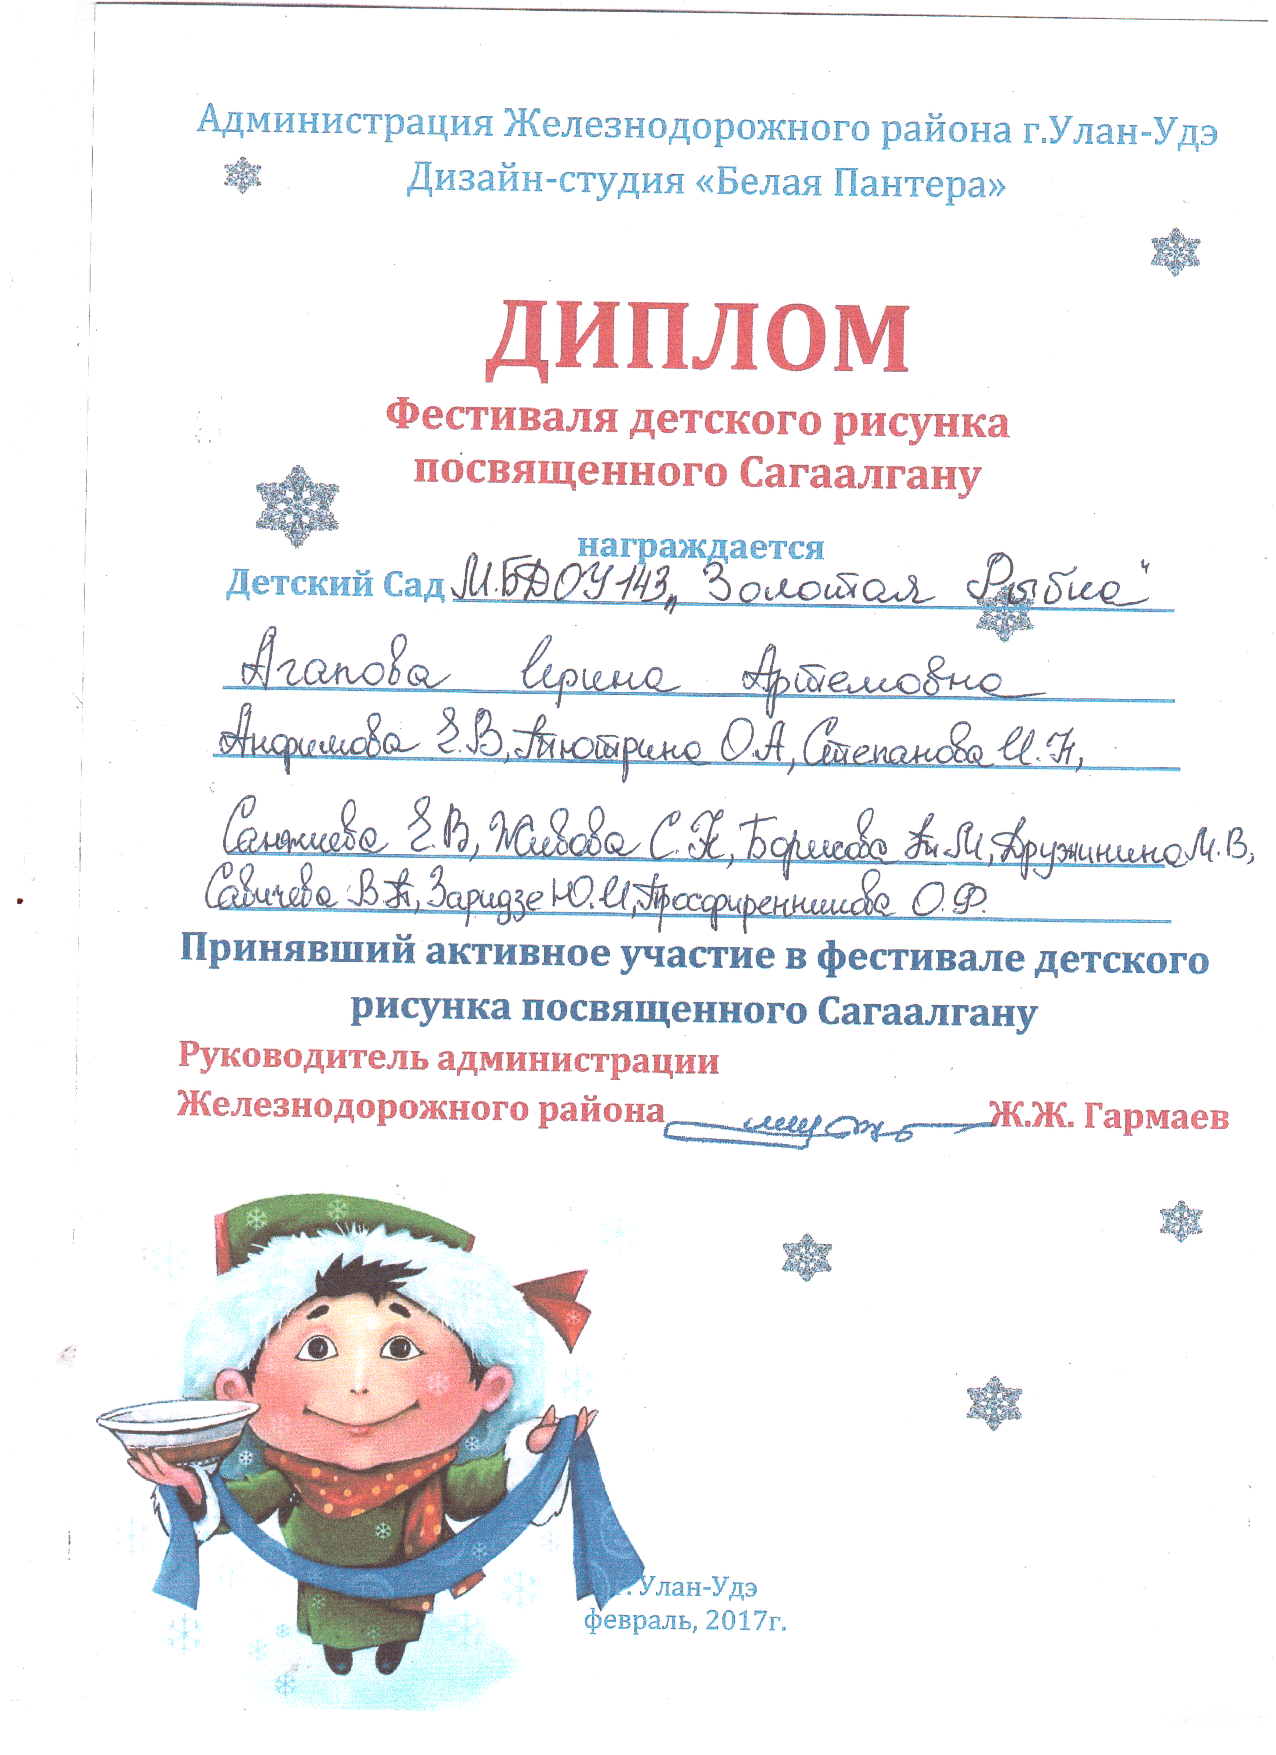 Администрация Железнодорожного района г.Улан-Удэ
Дизайн-студия «Белая Пантера»
ДИПЛОМ
Фестиваля детского рисунка
посвященного Сагаалгану
награждается
Детский Сад М.БДОУ 143 „Золотая Рыбка"
Агапова Ирина Артемовна
Анфимова Е.В, Тютрина О.А, Степанова И.Н,
Санжиева Е.В, Живова С.К, Борисова А.М, Дружинина М.В,
Савичева В.А, Заридзе Ю.И, Просфиренникова О.Ф.
Принявший активное участие в фестивале детского
рисунка посвященного Сагаалгану
Руководитель администрации
Железнодорожного района Ж.Ж. Гармаев
г. Улан-Удэ
февраль, 2017г.